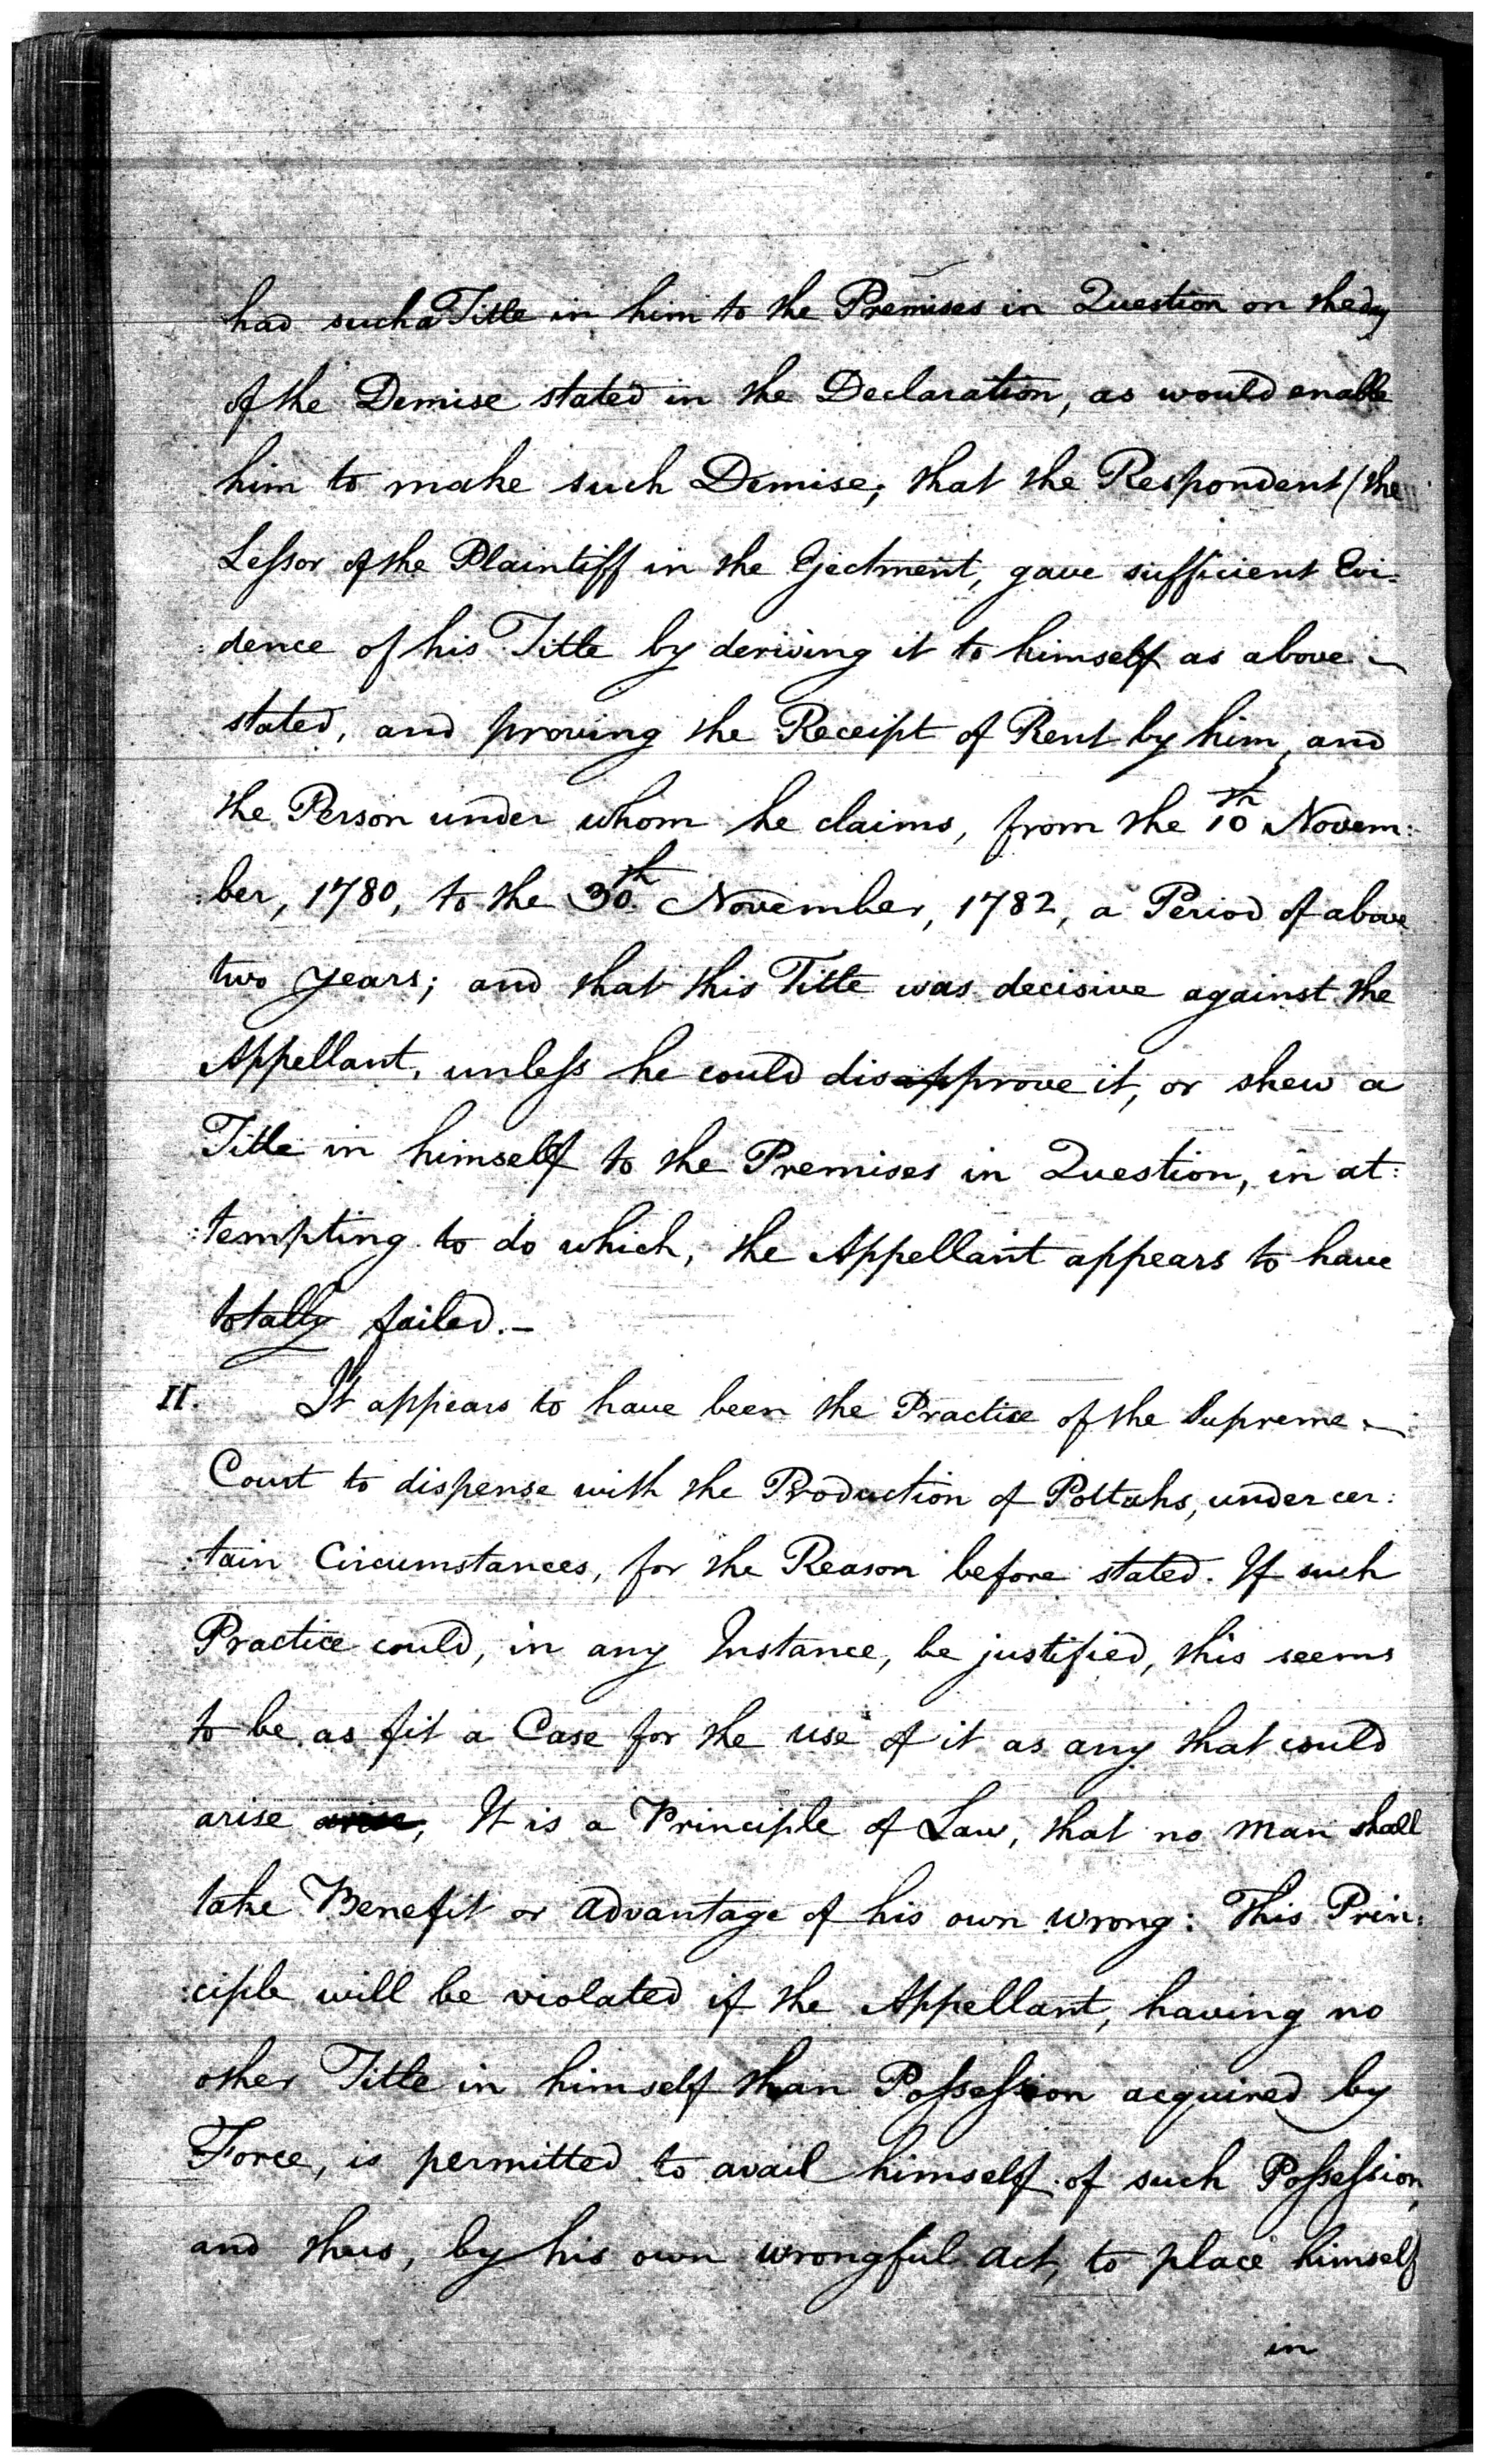 had such a Title in him to the Premises in Question on the day
of the Demise stated in the Declaration, as would enable
him to make such Demise; that the Respondent (the
Lessor of the Plaintiff in the Ejectment, gave sufficient Evi:
:dence of his Title by deriving it to himself as above
stated, and proving the Receipt of Rent by him, and
the Person under whom he claims, from the 10th Novem:
:ber, 1780, to the 30th November, 1782, a Period of above
two years; and that this Title was decisive against the
Appellant, unless he could disapprove it, or shew a
Title in himself to the Premises in Question, in at:
:tempting to do which, the Appellant appears to have
totally failed.—
II. It appears to have been the Practice of the Supreme
Court to dispense with the Production of Pottahs, under cer:
:tain Circumstances, for the Reason before stated. If such
Practice could, in any Instance, be justified, this seems
to be as fit a Case for the use of it as any that could
arise arise, It is a Principle of Law, that no Man shall
take Benefit or Advantage of his own wrong: This Prin:
:ciple will be violated if the Appellant, having no
other Title in himself than Possession acquired by
Force, is permitted to avail himself of such Possession,
and thus, by his own wrongful Act, to place himself
in